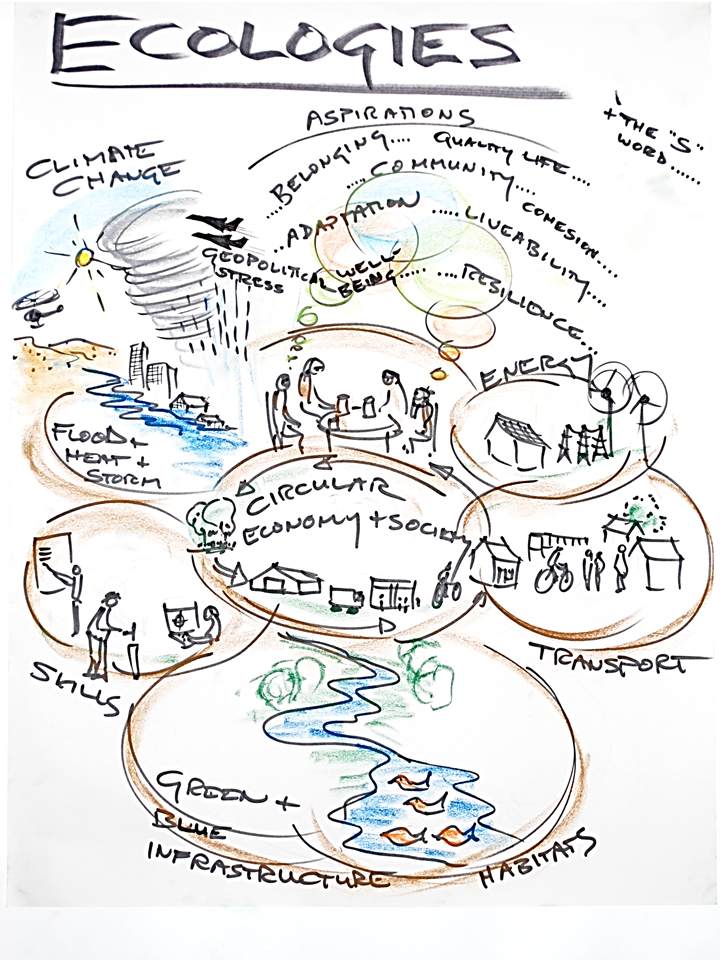 ECOLOGIES
ASPIRATIONS
+ THE "S"
WORD......
CLIMATE
CHANGE
....BELONGING....
QUALITY LIFE....
....COMMUNITY....
COHESION....
...ADAPTATION
.....LIVEABILITY....
GEOPOLITICAL
STRESS
WELL-
BEING.....
....RESILIENCE...
ENERGY
FLOOD +
HEAT +
STORM
CIRCULAR
ECONOMY + SOCIETY
SKILLS
TRANSPORT
GREEN +
BLUE
INFRASTRUCTURE
HABITATS